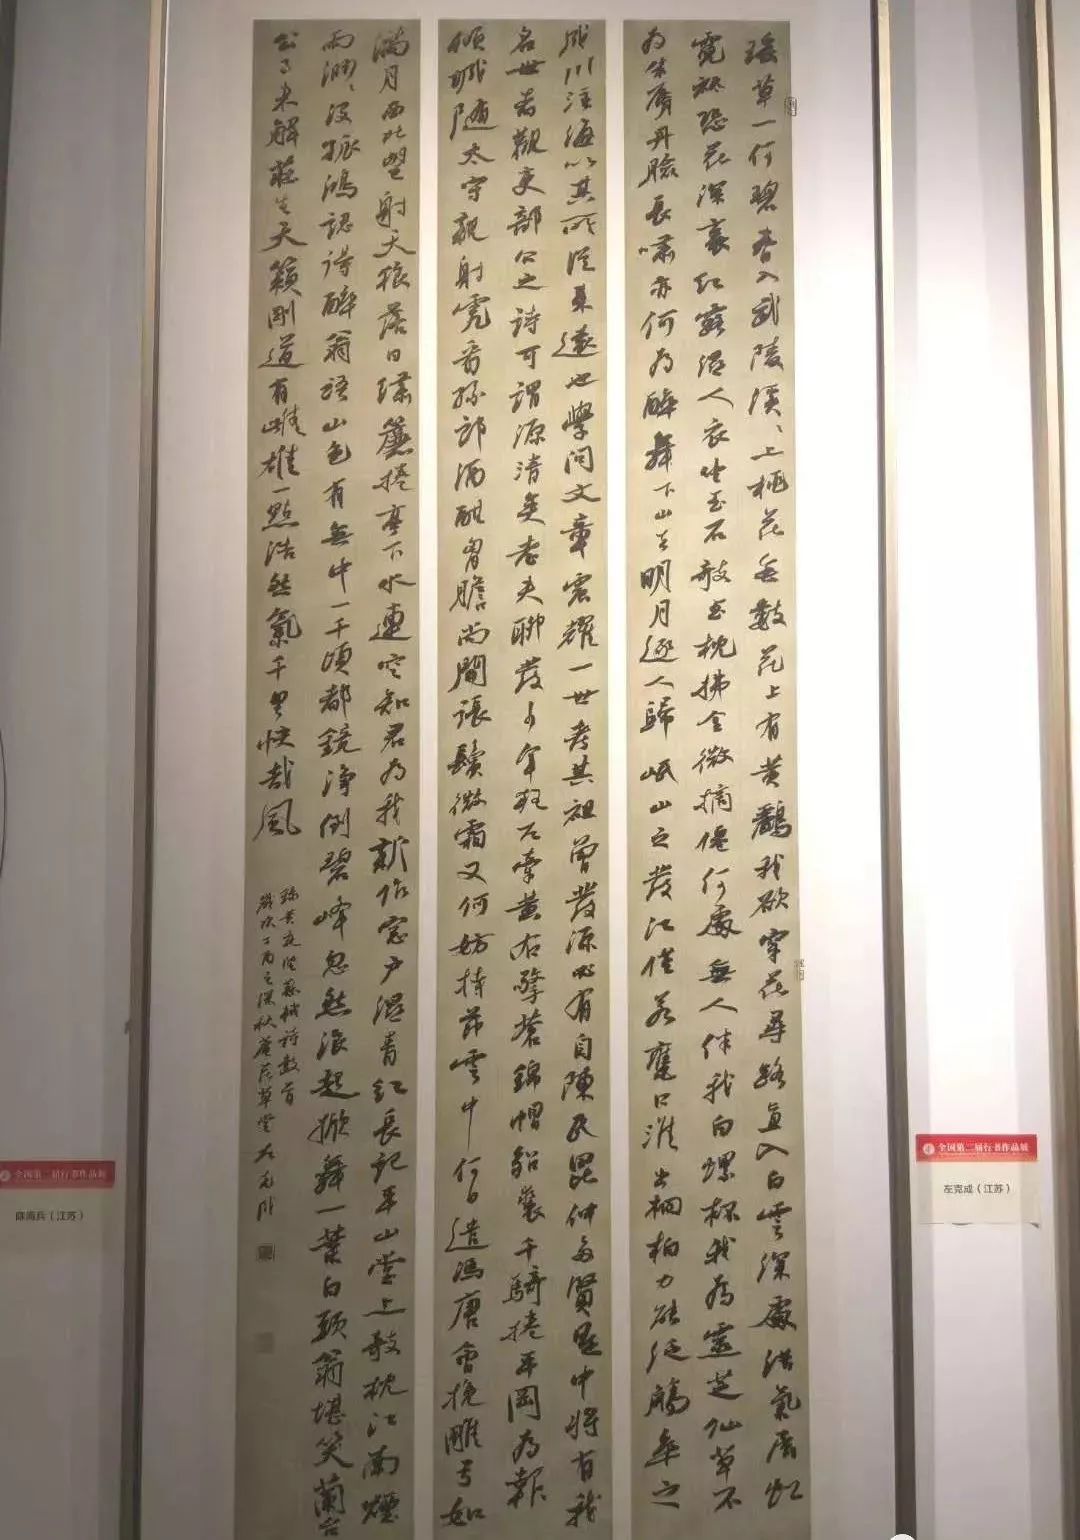 瑶草一何碧春入武陵溪〻上桃花無數花上有黄鸝我欲穿花尋路直入白雲深處浩氣展虹
霓祇恐花深裏红露濕人衣坐玉石敧玉枕拂金徽謫僊何處無人伴我白螺杯我为靈芝仙草不
为朱脣丹臉長嘯亦何为醉舞下山去明月逐人歸岷山之發江僅若甕口淮出桐柏力能泛觴卒之
成川注海以其所從来遠也學问文章震耀一世考其祖曾發源必有自陳氏昆仲多賢是中将有我
名世者觀吏部公之詩可謂源清矣老夫聊發少年狂左牽黄右擎蒼錦帽貂裘千騎捲平岡为報
傾城隨太守親射虎看孫郎酒酣胷膽尚開張鬢微霜又何妨持节雲中何日遣馮唐會挽雕弓如
满月西北望射天狼落日繡簾捲亭下水連空知君为我新作窓户湿青红長記平山堂上敧枕江南煙
雨渺〻没孤鴻認得醉翁語山色有無中一千頃都鏡净倒碧峰忽然浪起掀舞一葉白頭翁堪笑蘭台
公子未解莊生天籟剛道有雌雄一點浩然氣千里快哉風
録黄庭坚苏軾詩数首
歲次丁酉之深秋草堂左克成
全国第二届行书作品展
左克成（江苏）
全国第二届行书作品展
（江苏）